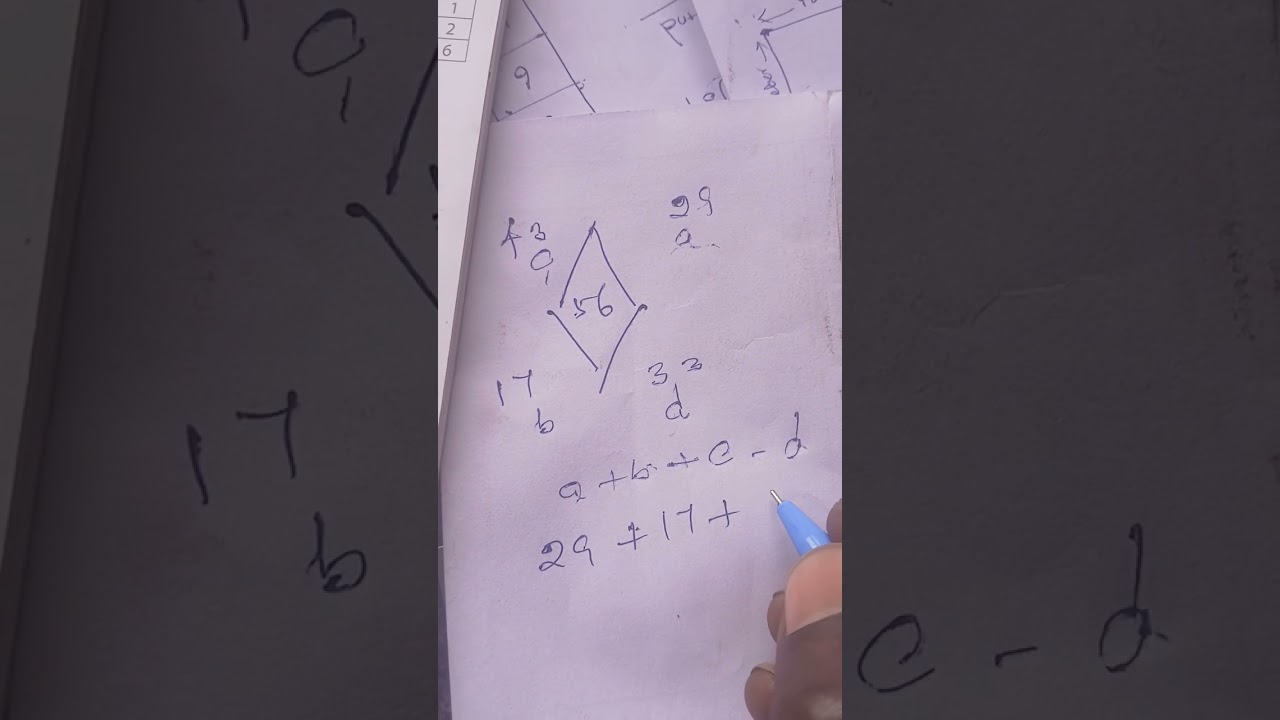 1
2
6
9
put
43
29
c
a
56
17
33
b
d
a + b + c - d
29 + 17 +